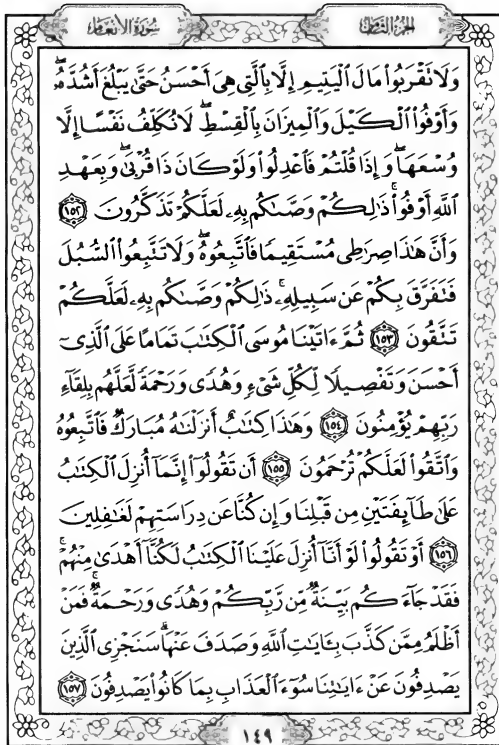 سُورَةُ الأَنْعَامِ
الجُزءُ الثَّامِنُ
وَلَا تَقْرَبُوا۟ مَالَ ٱلْيَتِيمِ إِلَّا بِٱلَّتِى هِىَ أَحْسَنُ حَتَّىٰ يَبْلُغَ أَشُدَّهُۥۖ
وَأَوْفُوا۟ ٱلْكَيْلَ وَٱلْمِيزَانَ بِٱلْقِسْطِۖ لَا نُكَلِّفُ نَفْسًا إِلَّا
وُسْعَهَاۖ وَإِذَا قُلْتُمْ فَٱعْدِلُوا۟ وَلَوْ كَانَ ذَا قُرْبَىٰۖ وَبِعَهْدِ
ٱللَّهِ أَوْفُوا۟ۚ ذَٰلِكُمْ وَصَّىٰكُم بِهِۦ لَعَلَّكُمْ تَذَكَّرُونَ ١٥٢
وَأَنَّ هَٰذَا صِرَٰطِى مُسْتَقِيمًا فَٱتَّبِعُوهُۖ وَلَا تَتَّبِعُوا۟ ٱلسُّبُلَ
فَتَفَرَّقَ بِكُمْ عَن سَبِيلِهِۦۚ ذَٰلِكُمْ وَصَّىٰكُم بِهِۦ لَعَلَّكُمْ
تَتَّقُونَ ١٥٣ ثُمَّ ءَاتَيْنَا مُوسَى ٱلْكِتَٰبَ تَمَامًا عَلَى ٱلَّذِىٓ
أَحْسَنَ وَتَفْصِيلًا لِّكُلِّ شَىْءٍ وَهُدًى وَرَحْمَةً لَّعَلَّهُم بِلِقَآءِ
رَبِّهِمْ يُؤْمِنُونَ ١٥٤ وَهَٰذَا كِتَٰبٌ أَنزَلْنَٰهُ مُبَارَكٌ فَٱتَّبِعُوهُ
وَٱتَّقُوا۟ لَعَلَّكُمْ تُرْحَمُونَ ١٥٥ أَن تَقُولُوٓا۟ إِنَّمَآ أُنزِلَ ٱلْكِتَٰبُ
عَلَىٰ طَآئِفَتَيْنِ مِن قَبْلِنَا وَإِن كُنَّا عَن دِرَاسَتِهِمْ لَغَٰفِلِينَ
١٥٦ أَوْ تَقُولُوا۟ لَوْ أَنَّآ أُنزِلَ عَلَيْنَا ٱلْكِتَٰبُ لَكُنَّآ أَهْدَىٰ مِنْهُمْۚ
فَقَدْ جَآءَكُم بَيِّنَةٌ مِّن رَّبِّكُمْ وَهُدًى وَرَحْمَةٌۚ فَمَنْ
أَظْلَمُ مِمَّن كَذَّبَ بِـَٔايَٰتِ ٱللَّهِ وَصَدَفَ عَنْهَاۗ سَنَجْزِى ٱلَّذِينَ
يَصْدِفُونَ عَنْ ءَايَٰتِنَا سُوٓءَ ٱلْعَذَابِ بِمَا كَانُوا۟ يَصْدِفُونَ ١٥٧
١٤٩